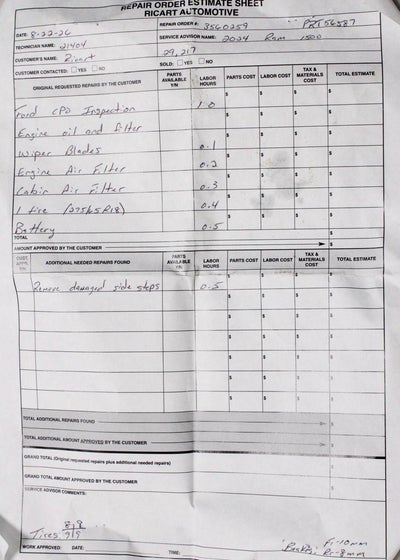 REPAIR ORDER ESTIMATE SHEET
RICART AUTOMOTIVE
DATE: 8-22-26 REPAIR ORDER #: 3560259 PRT56587
TECHNICIAN NAME: 21404 SERVICE ADVISOR NAME: 2024 Ram 1500
CUSTOMER'S NAME: Ricart 29,217
CUSTOMER CONTACTED: YES NO SOLD: YES NO
ORIGINAL REQUESTED REPAIRS BY THE CUSTOMER PARTS AVAILABLE Y/N LABOR HOURS PARTS COST LABOR COST TAX & MATERIALS COST TOTAL ESTIMATE
Ford CPO Inspection 1.0 $ $ $ $
Engine oil and filter $ $ $ $
Wiper Blades 0.1 $ $ $ $
Engine Air Filter 0.2 $ $ $ $
Cabin Air Filter 0.3 $ $ $ $
1 tire (275/65R18) 0.4 $ $ $ $
Battery 0.5 $ $ $ $
TOTAL
AMOUNT APPROVED BY THE CUSTOMER $
CUST. APPR. Y/N ADDITIONAL NEEDED REPAIRS FOUND PARTS AVAILABLE Y/N LABOR HOURS PARTS COST LABOR COST TAX & MATERIALS COST TOTAL ESTIMATE
Remove damaged side steps 0.5 $ $ $ $
$ $ $ $
$ $ $ $
$ $ $ $
$ $ $ $
$ $ $ $
TOTAL ADDITIONAL REPAIRS FOUND $
TOTAL ADDITIONAL AMOUNT APPROVED BY THE CUSTOMER $
GRAND TOTAL (Original requested repairs plus additional needed repairs) $
GRAND TOTAL AMOUNT APPROVED BY THE CUSTOMER $
SERVICE ADVISOR COMMENTS:
8/8
Tires 9/9 Fr-10mm
Rr-8mm
WORK APPROVED: DATE: TIME: